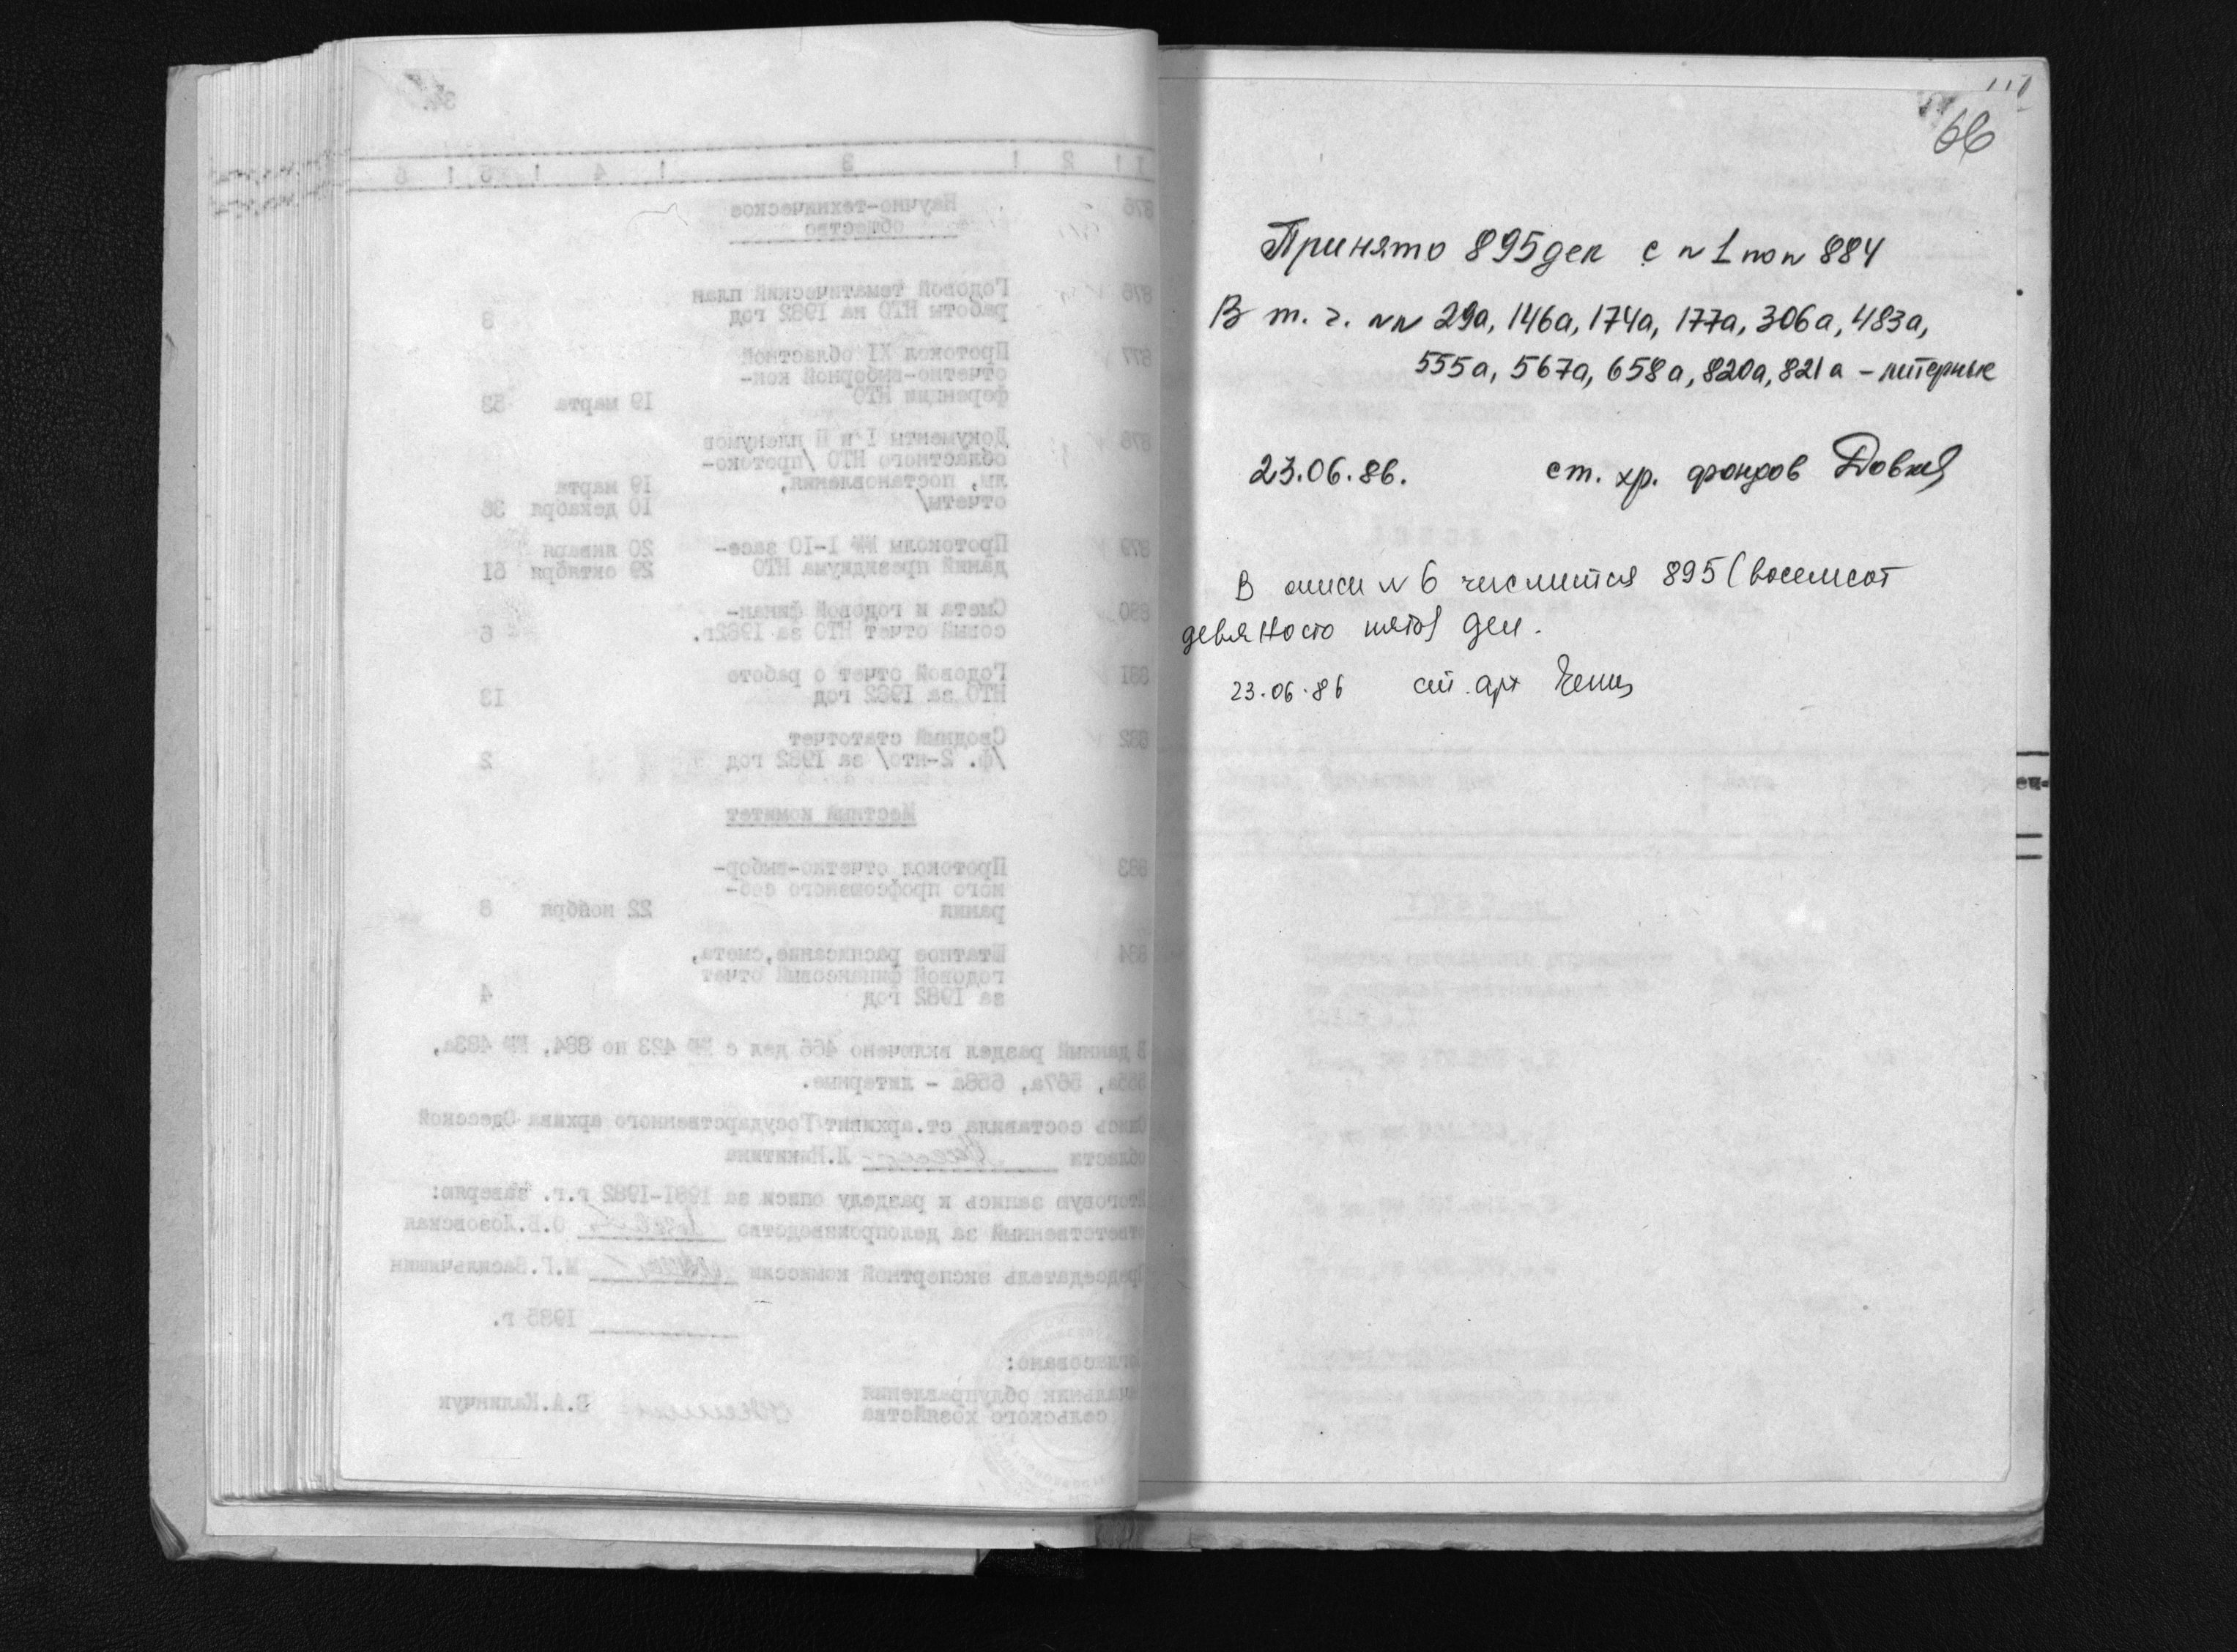 66
Принято 895 дел с № 1 по № 884
В т. ч. №№ 29а, 146а, 174а, 177а, 306а, 483а,
555а, 567а, 658а, 820а, 821а – литерные
23.06.86. ст. хр. фондов
В описи № 6 числится 895 (восемсот
девяносто пять) дел.
23.06.86 ст. арх
1 ! 2 ! 3 ! 4 ! 5 ! 6
876 Научно-техническое
общество
876 Годовой тематический план
работы НТО на 1982 год 8
877 Протокол XI областной
отчетно-выборной кон-
ференции НТО 19 марта 53
878 Документы I и II пленумов
областного НТО /протоко-
лы, постановления, 19 марта
отчеты/ 10 декабря 36
879 Протоколы №№ 1-10 засе- 20 января
даний президиума НТО 29 октября 61
880 Смета и годовой финан-
совый отчет НТО за 1982г. 6
881 Годовой отчет о работе
НТО за 1982 год 13
882 Сводный статотчет
/ф. 2-нто/ за 1982 год 2
Местный комитет
883 Протокол отчетно-выбор-
ного профсоюзного соб-
рания 22 ноября 8
884 Штатное расписание,смета,
годовой финансовый отчет
за 1982 год 4
В данный раздел включено 466 дел с №№ 423 по 884, №№ 483а,
555а, 567а, 658а – литерные.
Опись составила ст.архивист Государственного архива Одесской
области Л.Никитина
Итоговую запись к разделу описи за 1981-1982 г.г. заверяю:
Ответственный за делопроизводство О.В.Лозовская
Председатель экспертной комиссии М.Г.Васильчишин
1985 г.
Согласовано:
Начальник облуправления
сельского хозяйства В.А.Калинчук